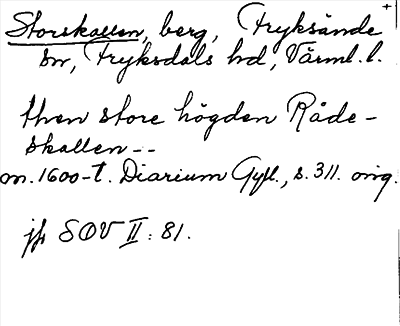 Storskallen, berg, Fryksände
sn, Fryksdals hd, Värml. l.
then store högden Råde-
skallen --
m. 1600-t. Diarium Gyll., s. 311. orig.
jfr SOV II: 81.